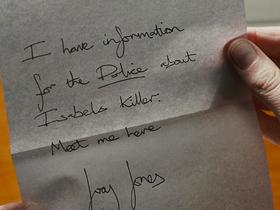 I have information
for the Police about
Isabels Killer.
Meet me here
Jones